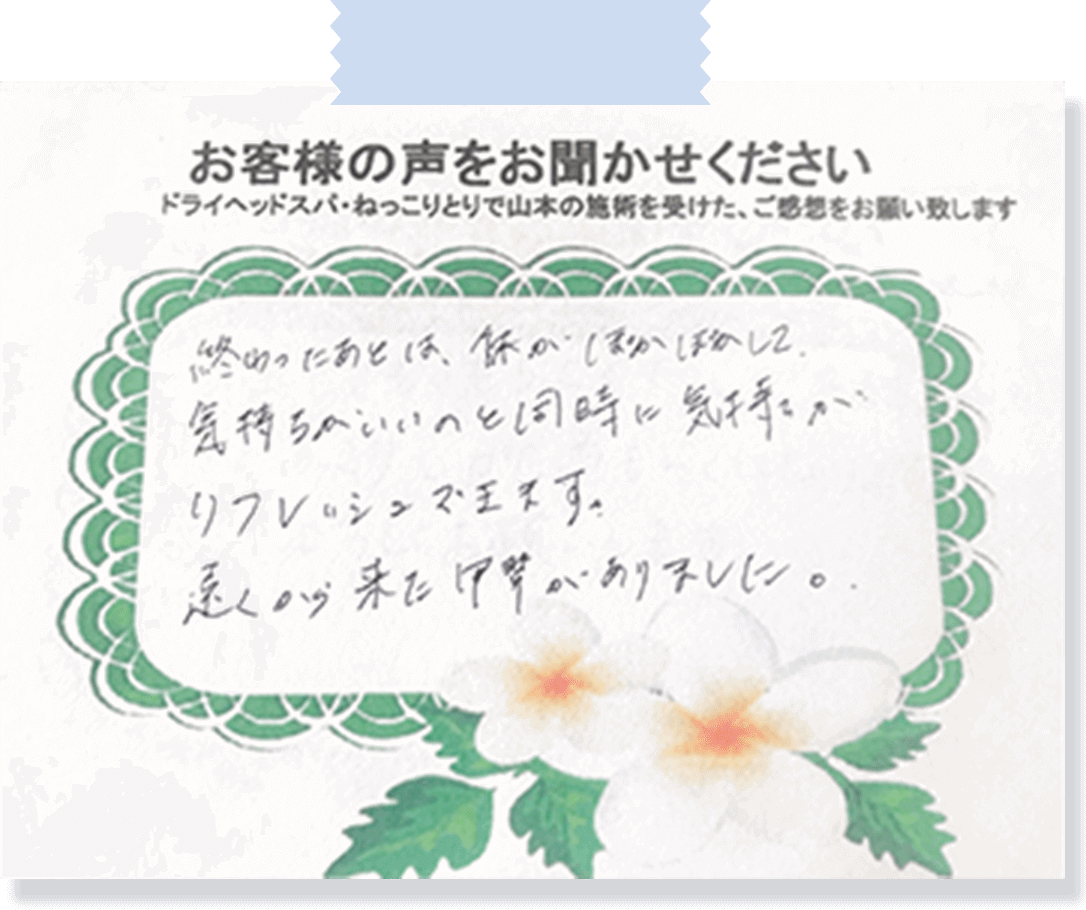 お客様の声をお聞かせください
ドライヘッドスパ・ねっこりとりで山本の施術を受けた、ご感想をお願い致します
終わったあとは、体がぽかぽかして
気持ちがいいのと同時に気持ちが
リフレッシュできます。
遠くから来た甲斐がありました。